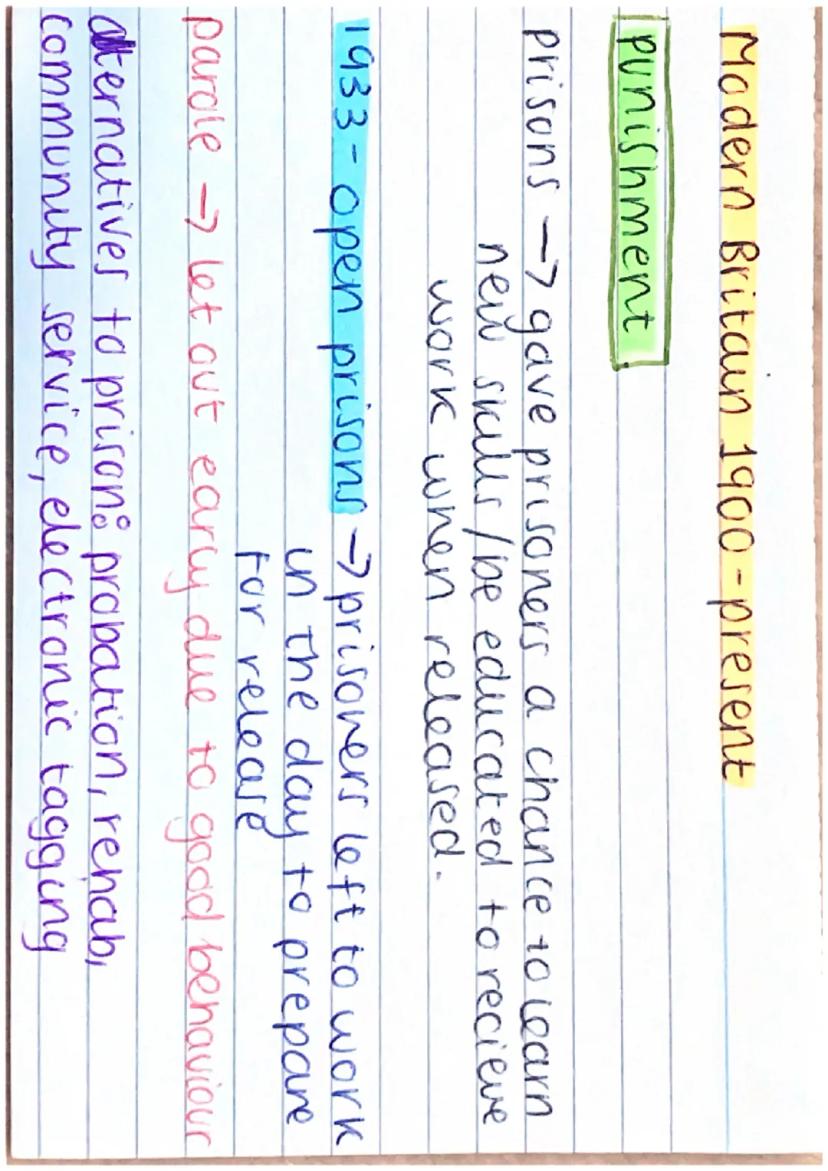 Modern Britain 1900-present
punishment
prisons → gave prisoners a chance to learn
new skills/be educated to recieve
work when released.
1933 - open prisons → prisoners left to work
in the day to prepare
for release
parole → let out early due to good behaviour
alternatives to prison: probation, rehab,
community service, electronic tagging